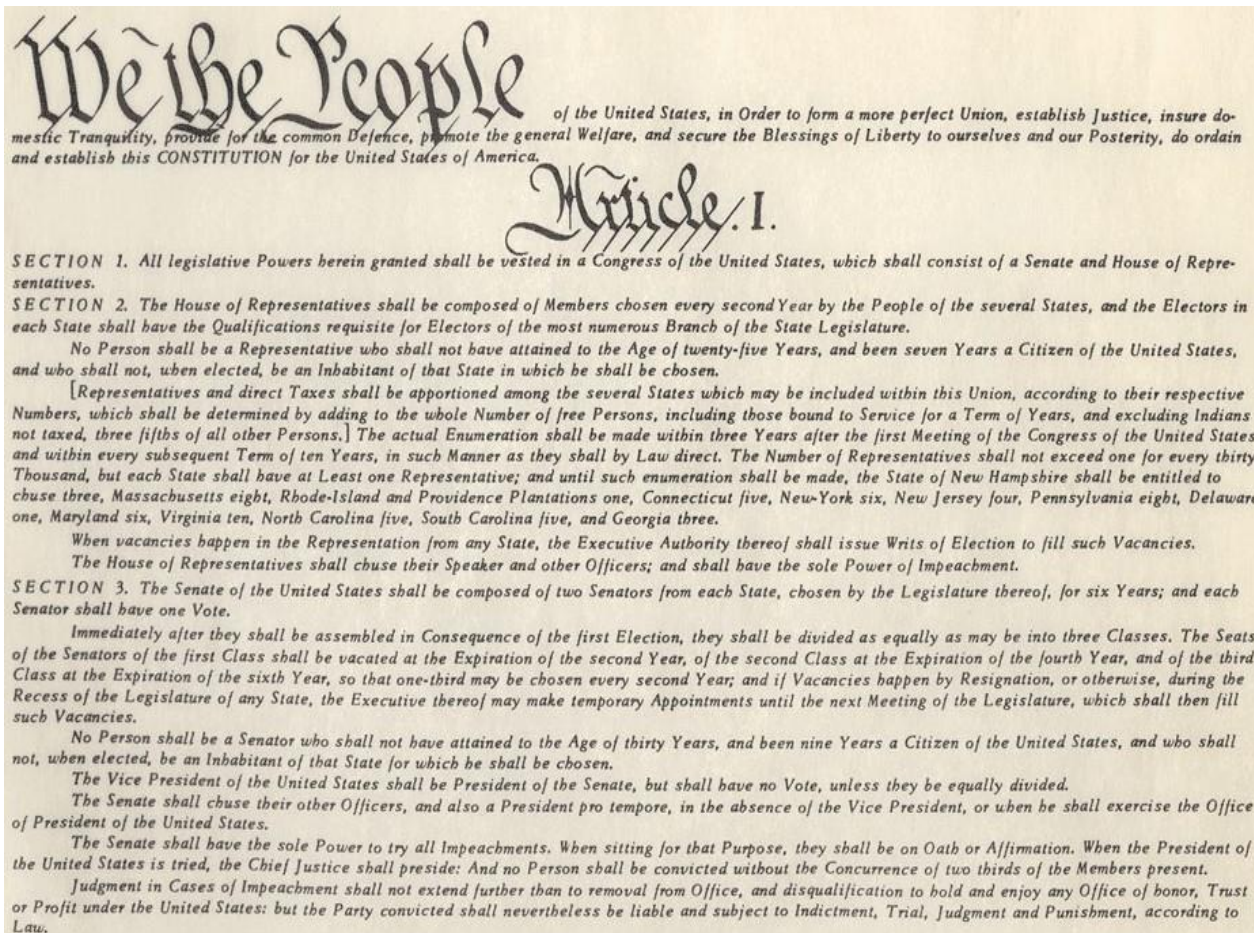 We the People
of the United States, in Order to form a more perfect Union, establish Justice, insure do-
mestic Tranquility, provide for the common Defence, promote the general Welfare, and secure the Blessings of Liberty to ourselves and our Posterity, do ordain
and establish this CONSTITUTION for the United States of America.
Article. I.
SECTION 1. All legislative Powers herein granted shall be vested in a Congress of the United States, which shall consist of a Senate and House of Repre-
sentatives.
SECTION 2. The House of Representatives shall be composed of Members chosen every second Year by the People of the several States, and the Electors in
each State shall have the Qualifications requisite for Electors of the most numerous Branch of the State Legislature.
No Person shall be a Representative who shall not have attained to the Age of twenty-five Years, and been seven Years a Citizen of the United States,
and who shall not, when elected, be an Inhabitant of that State in which he shall be chosen.
[Representatives and direct Taxes shall be apportioned among the several States which may be included within this Union, according to their respective
Numbers, which shall be determined by adding to the whole Number of free Persons, including those bound to Service for a Term of Years, and excluding Indians
not taxed, three fifths of all other Persons.] The actual Enumeration shall be made within three Years after the first Meeting of the Congress of the United States
and within every subsequent Term of ten Years, in such Manner as they shall by Law direct. The Number of Representatives shall not exceed one for every thirty
Thousand, but each State shall have at Least one Representative; and until such enumeration shall be made, the State of New Hampshire shall be entitled to
chuse three, Massachusetts eight, Rhode-Island and Providence Plantations one, Connecticut five, New-York six, New Jersey four, Pennsylvania eight, Delaware
one, Maryland six, Virginia ten, North Carolina five, South Carolina five, and Georgia three.
When vacancies happen in the Representation from any State, the Executive Authority thereof shall issue Writs of Election to fill such Vacancies.
The House of Representatives shall chuse their Speaker and other Officers; and shall have the sole Power of Impeachment.
SECTION 3. The Senate of the United States shall be composed of two Senators from each State, chosen by the Legislature thereof, for six Years; and each
Senator shall have one Vote.
Immediately after they shall be assembled in Consequence of the first Election, they shall be divided as equally as may be into three Classes. The Seats
of the Senators of the first Class shall be vacated at the Expiration of the second Year, of the second Class at the Expiration of the fourth Year, and of the third
Class at the Expiration of the sixth Year, so that one-third may be chosen every second Year; and if Vacancies happen by Resignation, or otherwise, during the
Recess of the Legislature of any State, the Executive thereof may make temporary Appointments until the next Meeting of the Legislature, which shall then fill
such Vacancies.
No Person shall be a Senator who shall not have attained to the Age of thirty Years, and been nine Years a Citizen of the United States, and who shall
not, when elected, be an Inhabitant of that State for which he shall be chosen.
The Vice President of the United States shall be President of the Senate, but shall have no Vote, unless they be equally divided.
The Senate shall chuse their other Officers, and also a President pro tempore, in the absence of the Vice President, or when he shall exercise the Office
of President of the United States.
The Senate shall have the sole Power to try all Impeachments. When sitting for that Purpose, they shall be on Oath or Affirmation. When the President of
the United States is tried, the Chief Justice shall preside: And no Person shall be convicted without the Concurrence of two thirds of the Members present.
Judgment in Cases of Impeachment shall not extend further than to removal from Office, and disqualification to hold and enjoy any Office of honor, Trust
or Profit under the United States: but the Party convicted shall nevertheless be liable and subject to Indictment, Trial, Judgment and Punishment, according to
Law.